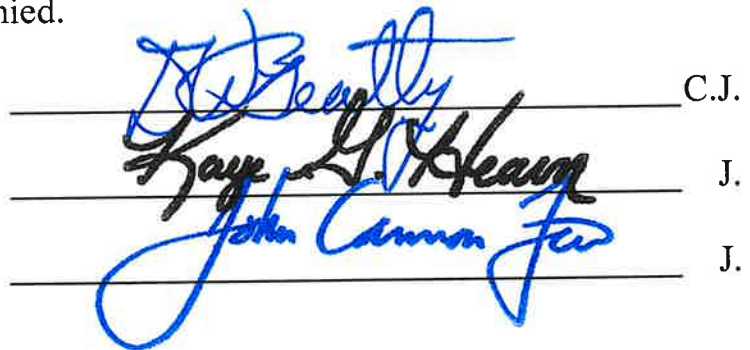 nied.
DWBeatty C.J.
Kaye G. Hearn J.
John Cannon Few J.